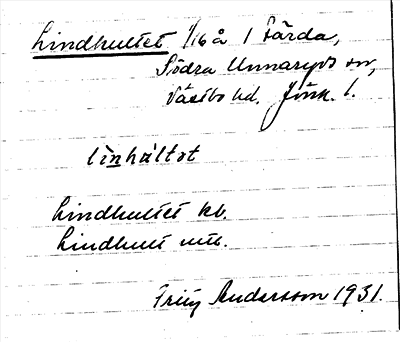 Lindhultet 1/16 å 1 Färda,
Södra Unnaryds sn,
Västbo hd. Jönk. l.
linhàltət
Lindhultet kb.
Lindhult mtl.
Fritz Andersson 1931.